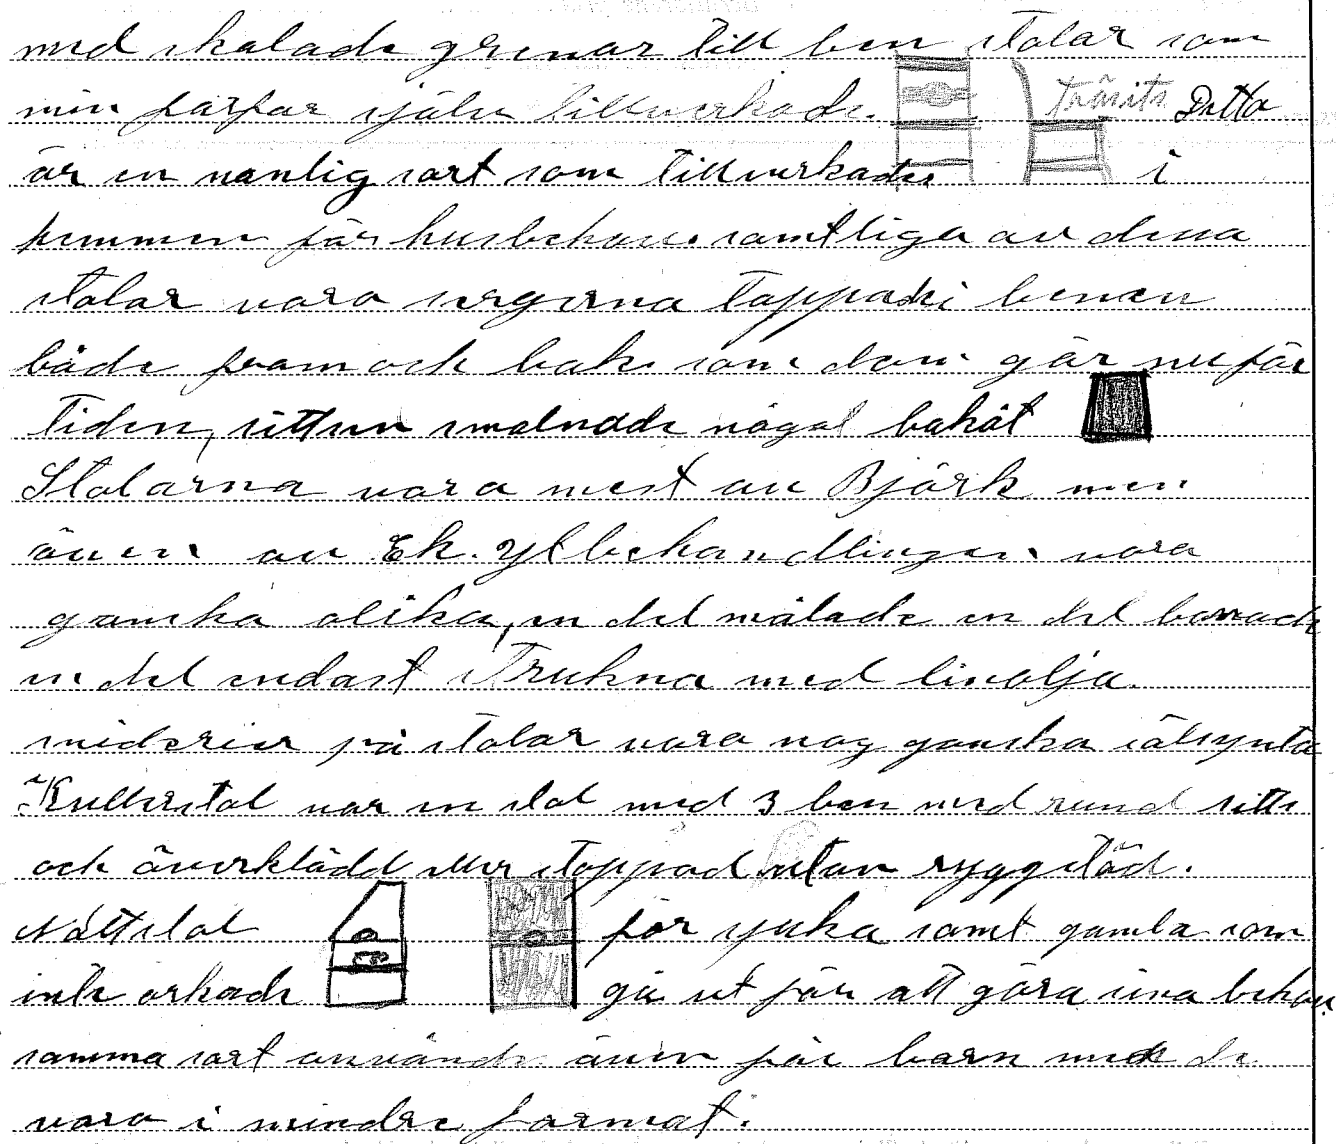 med skalade grenar till ben stolar som
min farfar själv tillverkade. träsits Detta
är en vanlig sort som tillverkades i
hemmen för husbehov. samtliga av dessa
stolar vara sargerna tappade i benen
både fram och bak som dom gör nu för
tiden, sittsen smalnade något bakåt
Stolarna vara mest av Björk men
även av Ek. ytbehandlingen vara
ganska olika, en del målade en del bonade
en del endast strukna med linolja.
sniderier på stolar vara nog ganska sälsynta
Kullerstol var en stol med 3 ben med rund sitts
och överklädd eller stoppad utan ryggstöd.
Nattstol för sjuka samt gamla som
inte orkade gå ut för att göra sina behov.
samma sort användes även för barn men de
vara i mindre format.